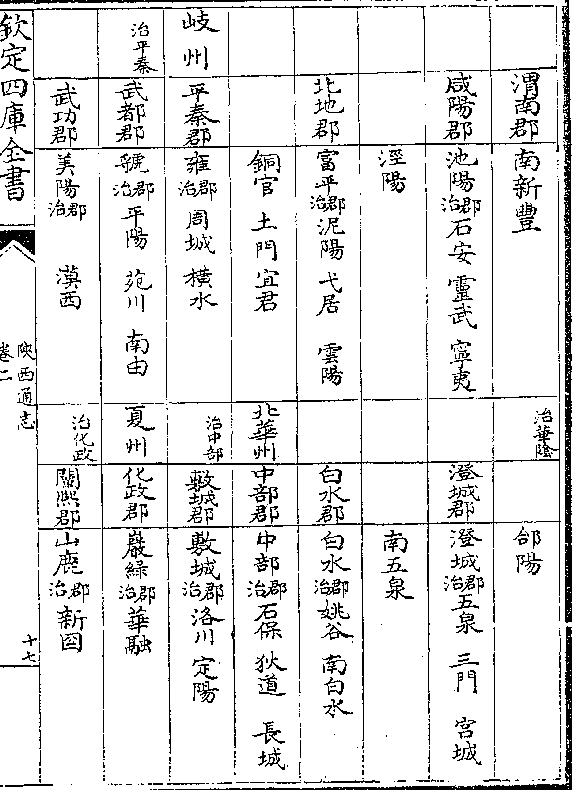 渭南郡 南新豐
咸陽郡 池陽郡治 石安 靈武 寧夷
涇陽
北地郡 富平郡治 泥陽 弋居 雲陽
銅官 土門 宜君
岐州 平秦郡 雍郡治 周城 橫水
治平秦 武都郡 虢郡治 平陽 苑川 南由
武功郡 美陽郡治 漠西
治華陰 郃陽
澄城郡 澄城郡治 五泉 三門 宮城
南五泉
白水郡 白水郡治 姚谷 南白水
北華州 中部郡 中部郡治 石保 狄道 長城
治中部 敷城郡 敷城郡治 洛川 定陽
夏州 化政郡 巖綠郡治 華融
治化政 闡熙郡 山鹿郡治 新囶
欽定四庫全書
陜西通志
卷二
十七